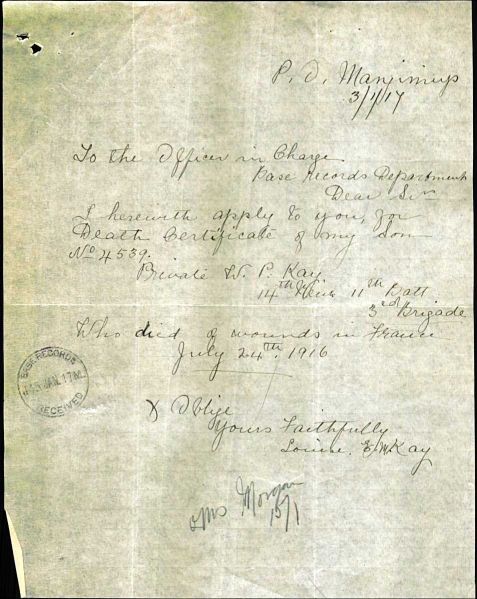 P. O. Manjimup
3/1/17
To the Officer in Charge
Base Records Department
Dear Sir
I herewith apply to you, for
Death Certificate of my Son
No 4539.
Private W. P. Kay
14th Reinf 11th Batt
3rd Brigade
Who died of wounds in France
July 24th 1916
& Oblige
Yours Faithfully
Louise. E. M. Kay
BASE RECORDS
JAN. 17
RECEIVED
Morgan
15/1